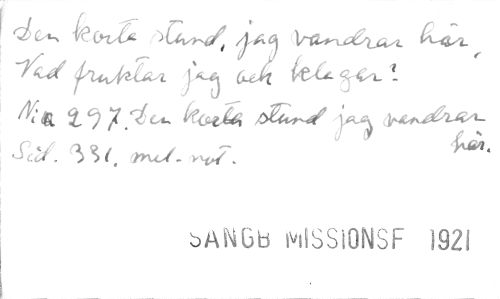 Den korta stund, jag vandrar här,
Vad fruktar jag och klagar?
No 297. Den korta stund jag vandrar
här.
Sid. 331. mel. not.
SANGB MISSIONSF 1921